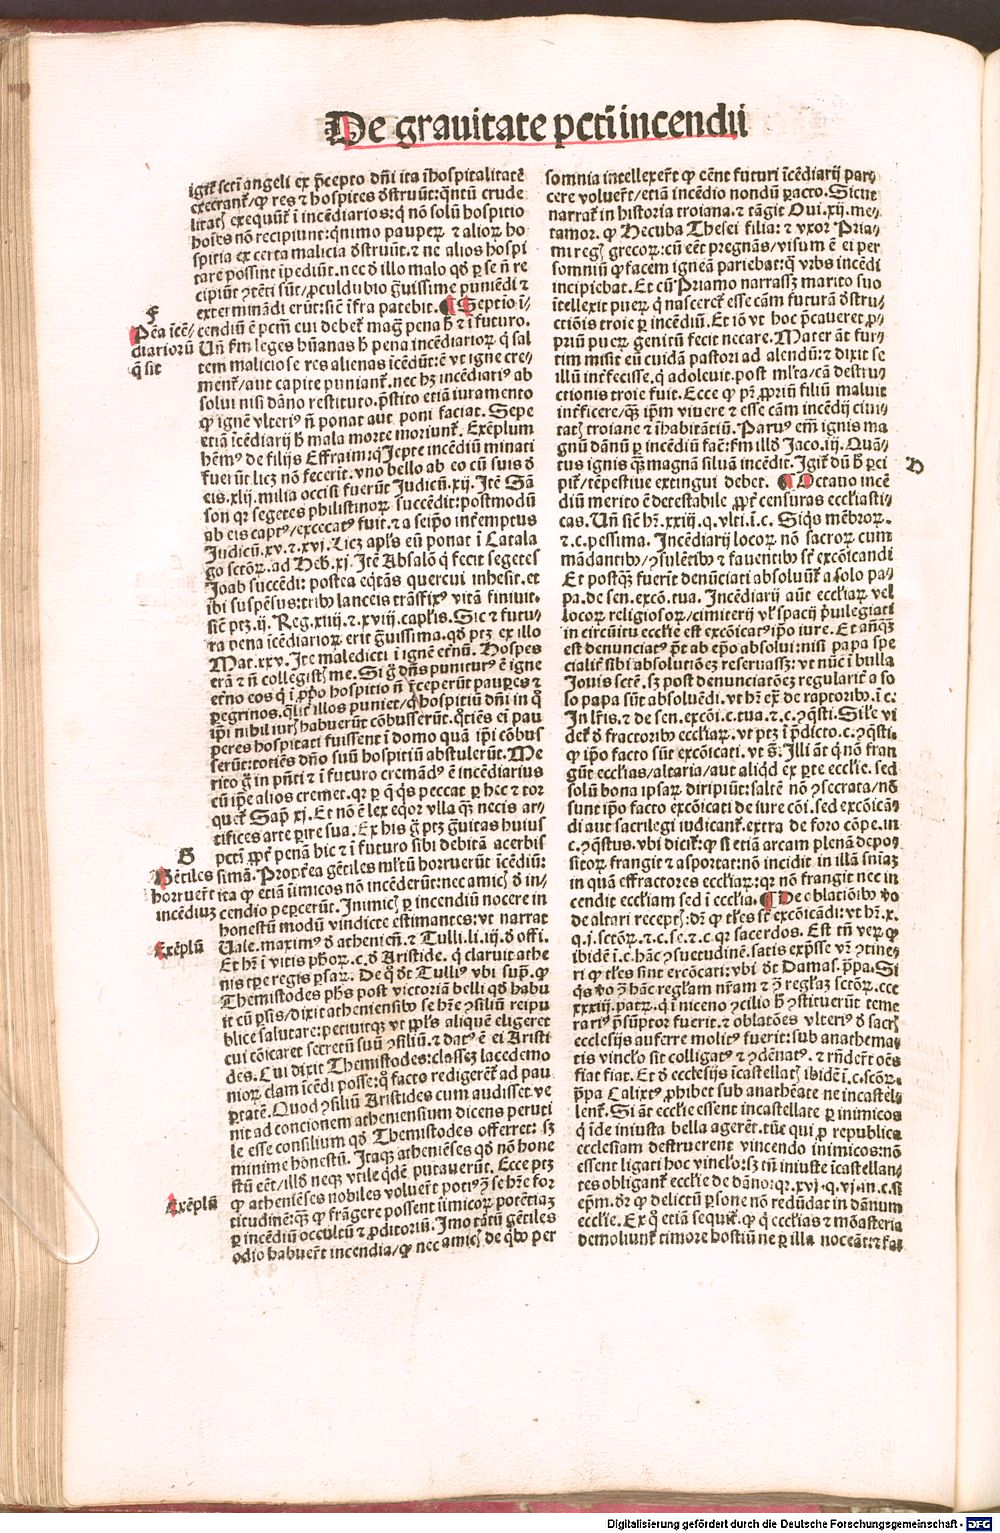 De grauitate pctī incendii
igit̄ scti angeli ex p̄cepto dn̄i ita īhospitalitatē
execrant̄/ ꝙ res ⁊ hospites dstruūt: qn̄tū crude
litatꝭ exequūt̄ ī incēdiarios: q̇ nō solū hospitio
hoīes nō recipiunt: qnimo pauperꝝ ⁊ aliorꝝ ho
spitia ex certa malicia dstruūt. ⁊ ne alios hospi
tare possint īpediūt. nec d illo malo qd ꝑ se ñ re
cipiūt ꝯtēti sūt/ ꝓculdubio grauissime puniēdi ⁊
exterminādi erūt: sic īfra patebit. ¶ Septio ī-
cendiū ē pctm̄ cui debet̄ mag̃ pena h̄ ⁊ ī futuro.
Un̄ fm leges hūanas h̄ pena incēdiarioꝝ q̇ sal
tem maliciose res alienas īcēdūt: ē vt igne cre-
ment̄/ aut capite puniant̄. nec hꝫ incēdiariꝰ ab
solui nisi dāno restituto. p̄stito etiā iuramento
ꝙ ignē vlteriꝰ ñ ponat aut poni faciat. Sepe
etiā īcēdiarij h̄ mala morte moriunt̄. Exēplum
hēmꝰ de filijs Effraim: q̇ Jepte incēdiū minati
fuerūt licꝫ nō fecerīt. vno bello ab eo cū suis d
eis. xlij. milia occisi fuerūt Judicū. xij. Itē Sā
son qꝛ segetes philistinoꝝ succēdit: postmodū
ab eis captꝰ/ excecatꝰ fuit. ⁊ a seipo īteremptus
Judicū. xv. ⁊. xvj. Licꝫ apls eū ponat ī Catala
go sctōꝝ. ad Heb. xj. Itē Absalō q̇ fecit segetes
Joab succēdi: postea eq̇tās quercui inhesit. et
ibi suspēsus: tribꝰ lanceis trāsfixꝰ vitā finiuit.
sic ptꝫ. ij. Reg. xiiij. ⁊. xviij. caplis. Sic ⁊ futu-
ra pena īcēdiarioꝝ erit grauissima. qd ptꝫ ex illo
Mat. xxv. Ite maledicti ī ignē etnū. Hospes
erā ⁊ ñ collegistꝭ me. Si g̊ dn̄s puniturꝰ ē igne
etno eos q̇ ī ꝓpo hospitio ñ receperūt pauꝑes ⁊
ꝑegrinos. q̄lit illos puniet/ q̇ hospitiū dn̄i in q̊
ipī nihil iurꝭ habuerūt cōbusserūt. q̊tiēs ei pau
peres hospitati fuissent ī domo quā ipī cōbus
serūt: totiēs dn̄o suū hospitiū abstulerūt. Me
rito g̊ in pn̄ti ⁊ ī futuro cremādꝰ ē incēdiarius
cū ipe alios cremet. qꝛ ꝑ q̄ qs peccat ꝑ hec ⁊ tor
quet̄ Sap̄. xj. Et nō ē lex eqor vlla qꝫ necis ar-
tifices arte ꝑire sua. Ex his g̊ ptꝫ grauitas huius
pcti ꝓpt̄ penā hic ⁊ ī futuro sibi debitā acerbis
simā. Propterea gētiles mltū horruerūt īcēdiū:
ita ꝙ etiā īimicos nō incēderūt: nec amicꝭ d in-
cendio peꝑcerūt. Inimicꝭ ꝑ incendiū nocere in
honestū modū vindicte estimantes: vt narrat
Uale. maximꝰ d atheniēn̄. ⁊ Tulli. li. iij. d offi.
Et hr̄ ī vitis phoꝝ. c. d Aristide. q̇ claruit athe
nis tꝑe regis ꝑsaꝝ. De q̊ dt Tulliꝰ vbi supꝛ. ꝙ
Themistodes phs post victoriā belli qd habu
it cū ꝑsis/ dixit atheniensibꝰ se hr̄e ꝯsiliū reipu
blice salutare: petiuitqꝫ vt ppls aliquē eligeret
cui cōicaret secretū suū ꝯsiliū. ⁊ datꝰ ē ei Aristi
des. Cui dixit Themistodes: classeꝫ lacedemo
nioꝝ clam īcēdi posse: q̊ facto redigerēt̄ ad pau
ꝑtatē. Quod ꝯsiliū Aristides cum audisset ve
nit ad concionem atheniensium dicens peruti
le esse consilium qd Themistodes offerret: sꝫ
minime honestū. Itaqꝫ athenieses qd nō hone
stū eēt/ illd neqꝫ vtile q̇dē putauerūt. Ecce ptꝫ
ꝙ atheniēses nobiles voluerūt potiꝰ ꝯ se hr̄e for
titudinē: qꝫ ꝙ frāgere possent īimicoꝝ potētiaꝫ
ꝑ incēdiū occultū ⁊ ꝓditoriū. Imo tātū gētiles
odio habuerūt incendia/ ꝙ nec amicꝭ de qbꝰ per
f
Pēa īcē-
diarioꝝ
q̄ sit
G
Gētiles
horruerūt
incēdiuꝫ
Exēplū
Exēplū
somnia intellexerūt ꝙ eēnt futuri īcēdiarij par
cere voluerūt/ etiā incēdio nondū ꝑacto. Sicut
narrat̄ in historia troiana. ⁊ tāgit Oui. xij. me-
tamor. ꝙ Hecuba Thesei filia: ⁊ vxor Pria-
mi regꝭ grecoꝝ: cū eēt pregnās/ visum ē ei per
somniū ꝙ facem igneā pariebat: q̄ vrbs incēdi
incipiebat. Et cū Priamo narrassꝫ marito suo
ītellexit pueꝝ q̇ nasceret̄ esse cām futurā dstru-
ctiōis troie ꝑ incēdiū. Et iō vt hoc p̄caueret ꝓ-
priū pueꝝ genitū fecit necare. Mater āt fur-
tim misit eū cuidā pastori ad alendū: ⁊ dixit se
illū interfecisse. q̇ adoleuit. post mlta/ cā destru
ctionis troie fuit. Ecce ꝙ pꝛ ꝓpriū filiū maluit
interficere/ qꝫ ipm viuere ⁊ esse cām incēdij ciui
tatꝭ troiane ⁊ īhabitātiū. Paruꝰ em̄ ignis ma
gnū dānū ꝑ incēdiū faē: fm illd Jaco. iij. Quā-
tus ignis qꝫ magnā siluā incēdit. Igit̄ dū h̄ ꝑci
pit̄/ tēpestiue extingui debet. ¶ Octauo incē
diū merito ē detestabile ꝓpt̄ censuras ecclīasti-
cas. Un̄ sic hr̄. xxiij. q. vlti. ī. c. Siqs mēbroꝝ.
⁊. c. pessima. Incēdiarij locoꝝ nō sacroꝝ cum
mādantibꝰ/ ꝯsulētibꝰ ⁊ fauentibꝰ st̄ excōicandi
Et postqꝫ fuerīt denūciati absoluūt̄ a solo pa-
pa. de sen. excō. tua. Incēdiarij aūt ecclīaꝝ vel
locoꝝ religiosoꝝ/ cimiterij vl̄ spacij p̄uilegiati
in circuitu ecclīe est excōicatꝰ ipo iure. Et anteqꝫ
est denunciatꝰ p̄t ab epo absolui: nisi papa spe
cialit̄ sibi absolutiōeꝫ reseruassꝫ: vt nūc ī bulla
Jouis scte. sꝫ post denunciatōeꝫ regularit̄ a so
lo papa sūt absoluēdi. vt hr̄ ex̄ de raptoribꝰ. ī. c.
In lr̄is. ⁊ de sen. excōi. c. tua. ⁊. c. ꝯq̄sti. Sile vi
det̄ d fractoribꝰ ecclīaꝝ. vt ptꝫ ī p̄dicto. c. ꝯq̄sti.
ꝙ ipo facto sūt excōicati. vt s̄. Illi āt q̇ nō fran
gūt ecclīas/ altaria/ aut aliqd ex ꝑte ecclīe. sed
solū bona ipsaꝝ diripiūt: saltē nō ꝯsecrata/ nō
sunt ipo facto excōicati de iure cōi. sed excōicā
di aut sacrilegi iudicant̄. extra de foro cōpe. in
c. ꝯq̄stus. vbi dicit̄: ꝙ si etiā arcam plenā depo-
sitoꝝ frangit ⁊ asportat: nō incidit in illā sn̄iaꝫ
in quā effractores ecclīaꝝ: qꝛ nō frangit nec in
cendit ecclīam sed ī ecclīa. ¶ De oblatiōibꝰ vo
de altari receptꝭ: dꝛ ꝙ tles st̄ excōicādi: vt hr̄. x.
q. j. sctōꝝ. ⁊. c. se. ⁊. c. qꝛ sacerdos. Est tn̄ veꝝ ꝙ
ibidē ī. c. hāc ꝯsuetudinē. satis exp̄sse vr̄ ꝯtine-
ri ꝙ tles sint ercōicati: vbi dt Damas. p̄pa. Si
qs vo ꝯ hāc regulam nr̄am ⁊ ꝯ reglaꝫ sctōꝝ. ccc
xxxiij. patꝝ. q̇ ī niceno ꝯcilio h̄ ꝯstituerūt teme
rariꝰ p̄sūptor fuerit. ⁊ oblatōes vlteriꝰ d sacrꝭ
ecclesijs auferre molitꝰ fuerit: sub anathema-
tis vinclo sit colligatꝰ ⁊ ꝯdēnatꝰ. ⁊ rn̄dert oēs
fiat fiat. Et d ecclesijs īcastellatꝭ ibidē ī. c. sctōꝝ.
p̄pa Calixtꝰ ꝓhibet sub anathēate ne incastel-
lent̄. Si āt ecclīe essent incastellate ꝑ inimicos
q̇ īde iniusta bella agerēt. tūc qui ꝓ republica
ecclesiam destruerent vincendo inimicos: nō
essent ligati hoc vinclo: sꝫ tn̄ iniuste īcastellan-
tes obligant̄ ecclīe de dāno: qꝛ. xvj. q. vj. in. c. si
epm. dꝛ ꝙ delictū ꝑsone nō redūdat in dānum
ecclīe. Ex q̊ etiā sequit̄. ꝙ q̇ ecclīas ⁊ mōasteria
demoliunt̄ timore hostiū ne ꝑ illa noceāt: ⁊ fa-
D
Digitalisierung gefördert durch die Deutsche Forschungsgemeinschaft - DFG